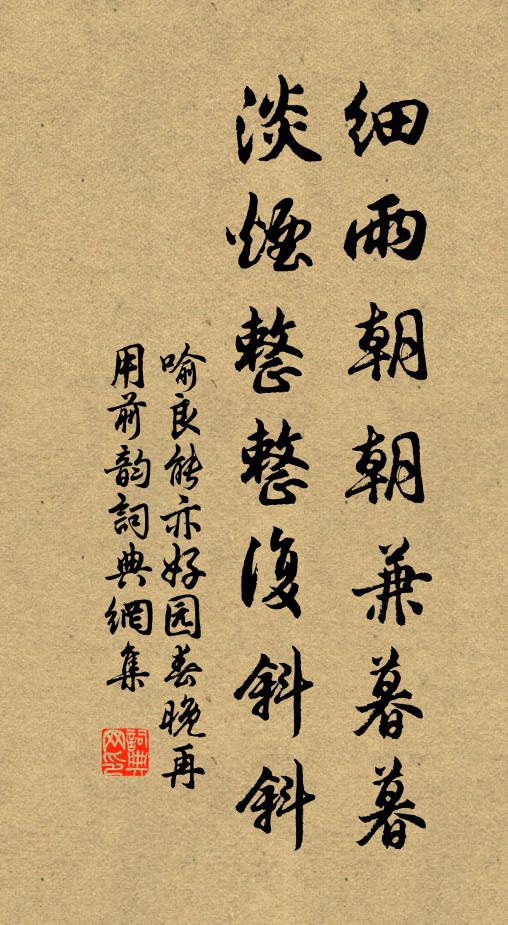 細雨朝朝兼暮暮
淡煙整整復斜斜
喻良能亦好园春晚再
用前韵詞典網集
詞典網印